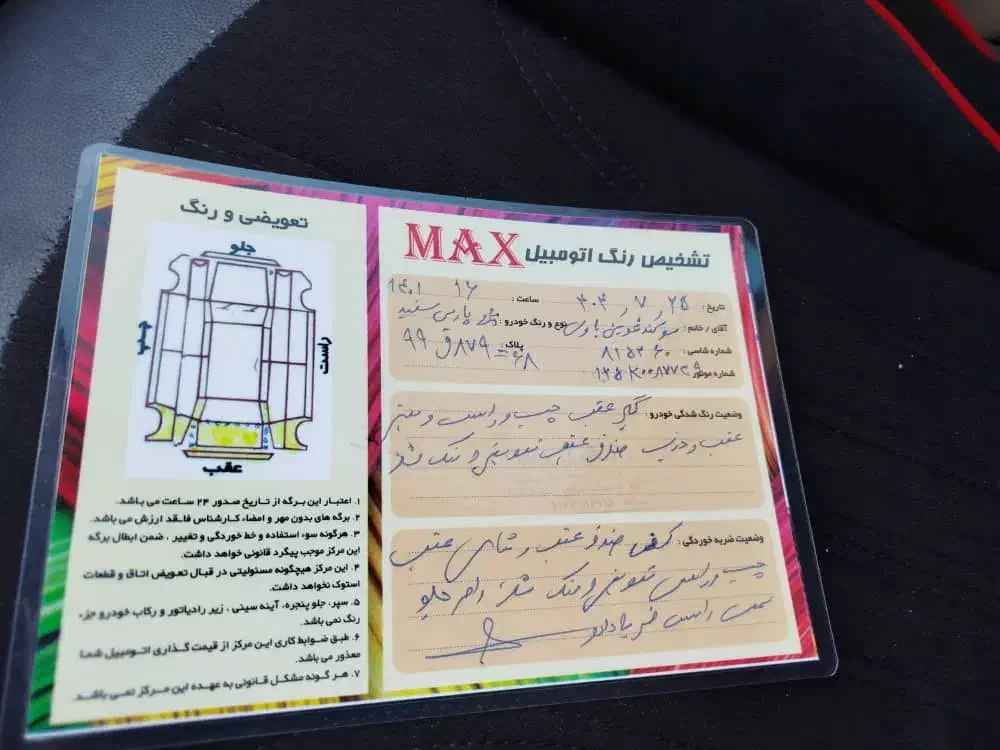 تشخیص رنگ اتومبیل MAX
تاریخ: ۲۵ / ۷ / ۴۰۳ ساعت: ۱۶
آقای / خانم: نوع و رنگ خودرو: پارس سفید ۱۴۰۱
شماره شاسی: ۸۱۵۳۶۰ پلاک: ۶۸ = ۸۷۹ ق ۹۹
شماره موتور:
وضعیت رنگ شدگی خودرو: گلگیر عقب چپ و راست و
عقب و درب صندوق عقب تعویض و رنگ شد
وضعیت ضربه خوردگی: کفی صندوق عقب و عقب
چپ و راست تعویض و رنگ شده رام جلو
سمت راست ضربه دارد
تعویضی و رنگ
جلو
چپ
راست
عقب
۱. اعتبار این برگه از تاریخ صدور ۲۴ ساعت می باشد.
۲. برگه های بدون مهر و امضاء کارشناس فاقد ارزش می باشد.
۳. هرگونه سوء استفاده و خط خوردگی و تغییر ، ضمن ابطال برگه
این مرکز موجب پیگرد قانونی خواهد داشت.
۴. این مرکز هیچگونه مسئولیتی در قبال تعویض اتاق و قطعات
استوک نخواهد داشت.
۵. سپر، جلو پنجره، آینه سینی ، زیر رادیاتور و رکاب خودرو جزء
رنگ نمی باشد.
۶. طبق ضوابط کاری این مرکز از قیمت گذاری اتومبیل شما
معذور می باشد.
۷. هر گونه مشکل قانونی به عهده این مرکز نمی باشد.